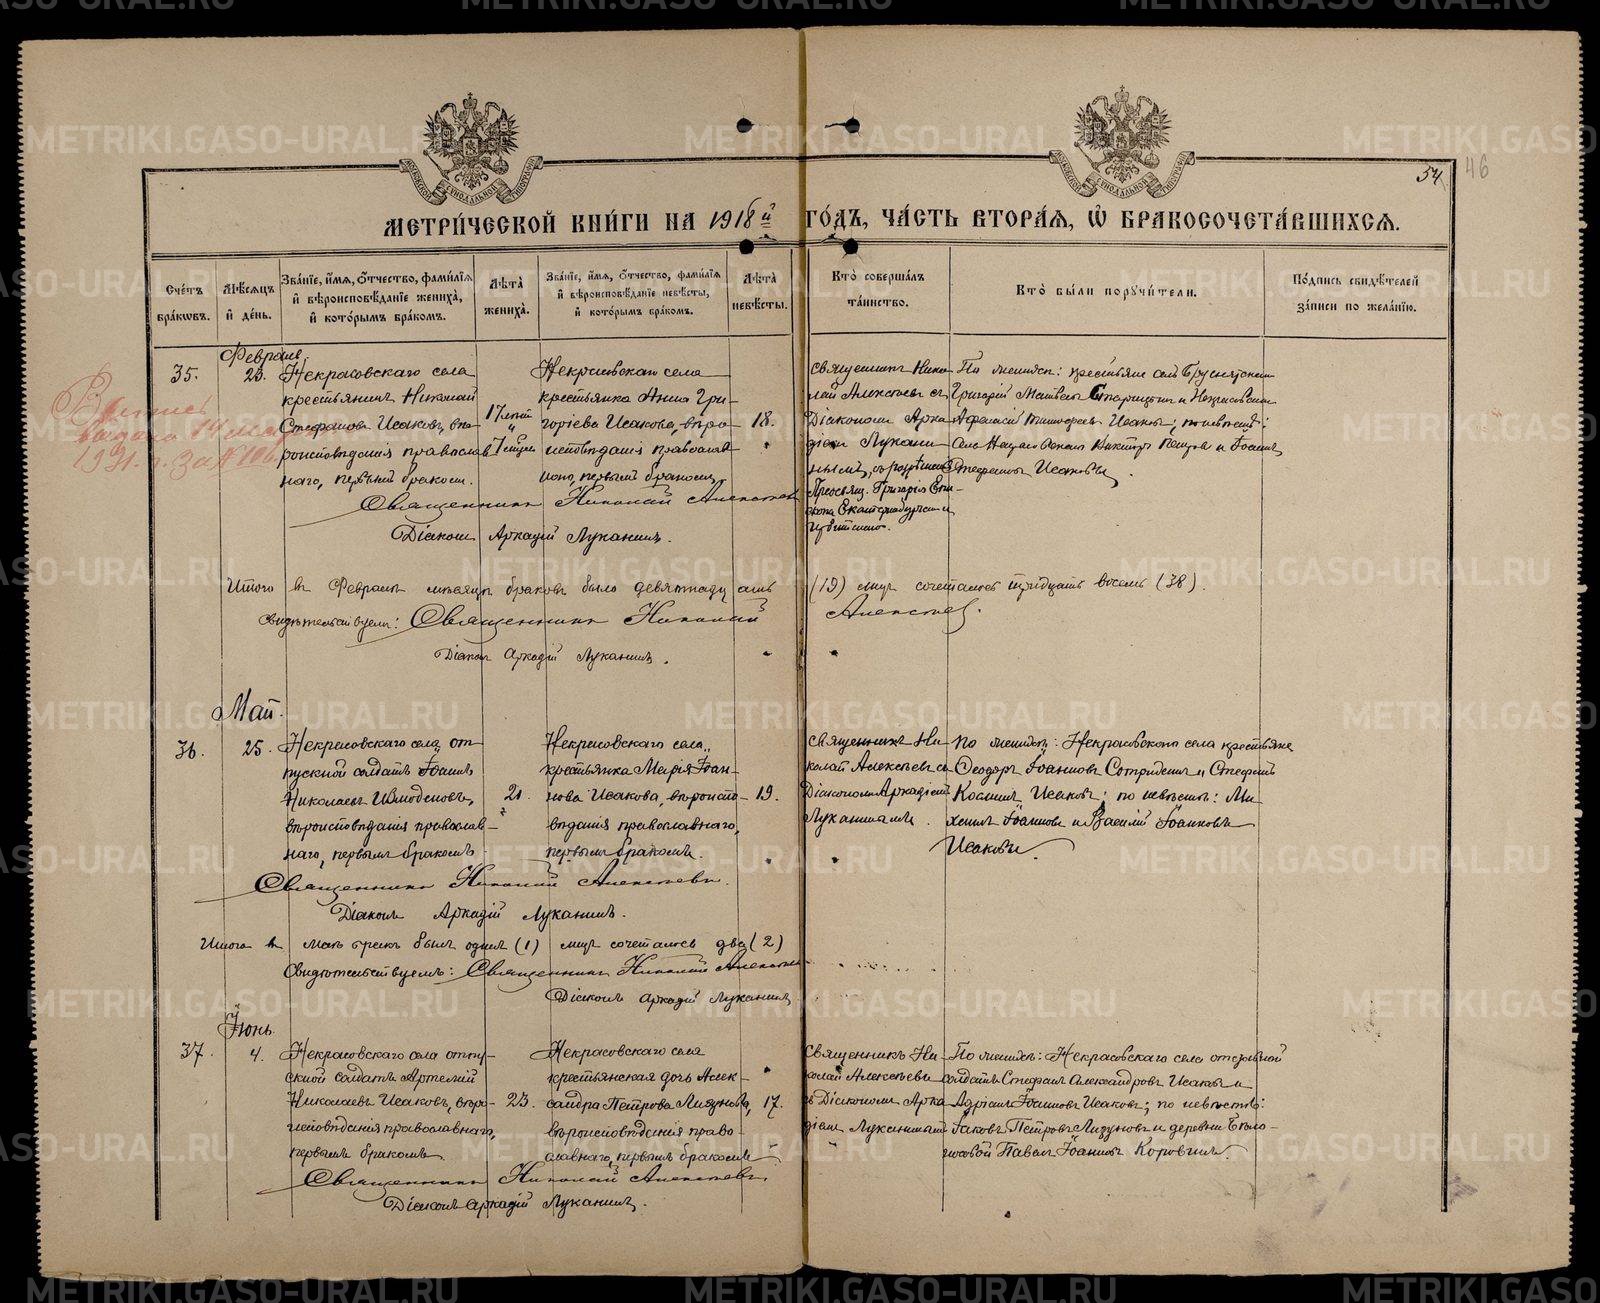 54
46
МЕТРИ́ЧЕСКОЙ КНИ́ГИ НА 1918й ГО́ДЪ, ЧА́СТЬ ВТОРА́Я, Ѡ БРАКОСОЧЕТА́ВШИХСЯ.
Сче́тъ бра́кωвъ.
Мѣ́сяцъ и де́нь.
Зва́нїе, и́мя, ѻ́тчество, фами́лїя и вѣроисповѣ́данїе жениха̀, и кото́рымъ бра́комъ.
Лѣта̀ жениха̀.
Зва́нїе, и́мя, ѻ́тчество, фами́лїя и вѣроисповѣ́данїе невѣ́сты, и кото́рымъ бра́комъ.
Лѣта̀ невѣ́сты.
Кто̀ соверша́лъ та́инство.
Кто̀ бы́ли порꙋчи́тели.
По́дпись свидѣ́телей за́писи по жела́нїю.
Февраль.
35.
23.
Некрасовскаго села
крестьянинъ Николай
Стефановъ Исаковъ, вѣ-
роисповѣданія православ-
наго, первымъ бракомъ.
17 лѣтъ
и
7 мѣсяц
Некрасовскаго села
крестьянка Анна Гри-
горіева Исакова, вѣро-
исповѣданія православ-
наго, первымъ бракомъ.
18.
Священникъ Нико-
лай Алексѣевъ съ
Діакономъ Арка-
діемъ Лукани-
нымъ, съ разрѣшенія
Преосвящ. Григорія Епи-
скопа Екатеринбургскаго и
Ирбитскаго.
По женихѣ: крестьяне села Бруснятскаго
Григорій Матвѣевъ Старицынъ и Некрасовскаго
Афанасій Тимофеевъ Исаковъ; по невѣстѣ:
Никторъ Петровъ и Іоаннъ
Стефановъ Исаковы.
выдана 14
1931 г. за №
Священникъ Николай Алексѣевъ
Діаконъ Аркадій Луканинъ.
Итого въ Февралѣ мѣсяцѣ браковъ было девятнадцать (19) лицъ сочеталось тридцать восемь (38).
Свидѣтельствуемъ: Священникъ Николай Алексѣевъ.
Діаконъ Аркадій Луканинъ.
Май.
36.
25.
Некрасовскаго села, от-
пускной солдатъ Іоаннъ
Николаевъ
вѣроисповѣданія православ-
наго, первымъ бракомъ
21.
Некрасовскаго села,
крестьянка Марія Іоан-
нова Исакова, вѣроиспо-
вѣданія православнаго,
первымъ бракомъ.
19.
Священникъ Ни-
колай Алексѣевъ съ
Діакономъ Аркадіемъ
Луканинымъ.
По женихѣ: Некрасовскаго села крестьяне
Ѳеодоръ Іоанновъ и Стефанъ
Косминъ Исаковъ; по невѣстѣ: Ми-
хаилъ Іоанновъ и Василій Іоанновъ
Исаковы.
Священникъ Николай Алексѣевъ.
Діаконъ Аркадій Луканинъ.
Итого въ Маѣ бракъ былъ одинъ (1) лицъ сочеталось два (2)
Свидѣтельствуемъ: Священникъ Николай Алексѣевъ
Діаконъ Аркадій Луканинъ
Іюнь.
37.
4.
Некрасовскаго села отпу-
скной солдатъ Артемій
Николаевъ Исаковъ, вѣро-
исповѣданія православнаго,
первымъ бракомъ.
23.
Некрасовскаго села
крестьянская дочь Алек-
сандра Петрова Лизунова,
вѣроисповѣданія право-
славнаго, первымъ бракомъ
17.
Священникъ Ни-
колай Алексѣевъ
съ Діакономъ Арка-
діемъ Луканинымъ
По женихѣ: Некрасовскаго села отпускной
солдатъ Стефанъ Александровъ Исаковъ и
Адріанъ Іоанновъ Исаковъ; по невѣстѣ:
Іаковъ Петровъ Лизуновъ и деревни Бѣло-
носовой Павелъ Іоанновъ Коровинъ.
Священникъ Николай Алексѣевъ.
Діаконъ Аркадій Луканинъ.
METRIKI.GASO-URAL.RU